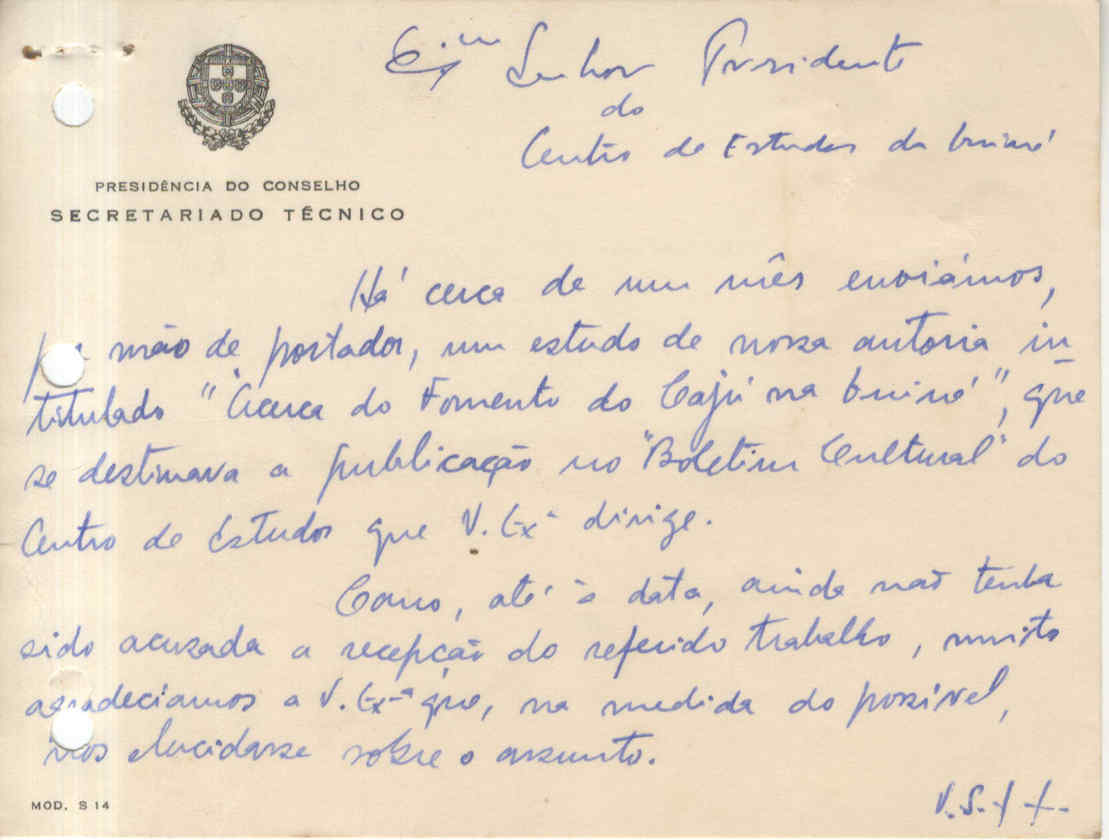 Exmo Senhor Presidente
do
Centro de Estudos da Guiné
PRESIDÊNCIA DO CONSELHO
SECRETARIADO TÉCNICO
Há cerca de um mês enviámos,
por mão de portador, um estudo de nossa autoria in-
titulado "Acerca do Fomento do Cajú na Guiné", que
se destinava a publicação no "Boletim Cultural" do
Centro de Estudos que V. Exª dirige.
Como, até à data, ainda não tenha
sido acusada a recepção do referido trabalho, muito
agradecíamos a V. Exª que, na medida do possível,
nos elucidasse sobre o assunto.
MOD. S 14
V.S.F.F.